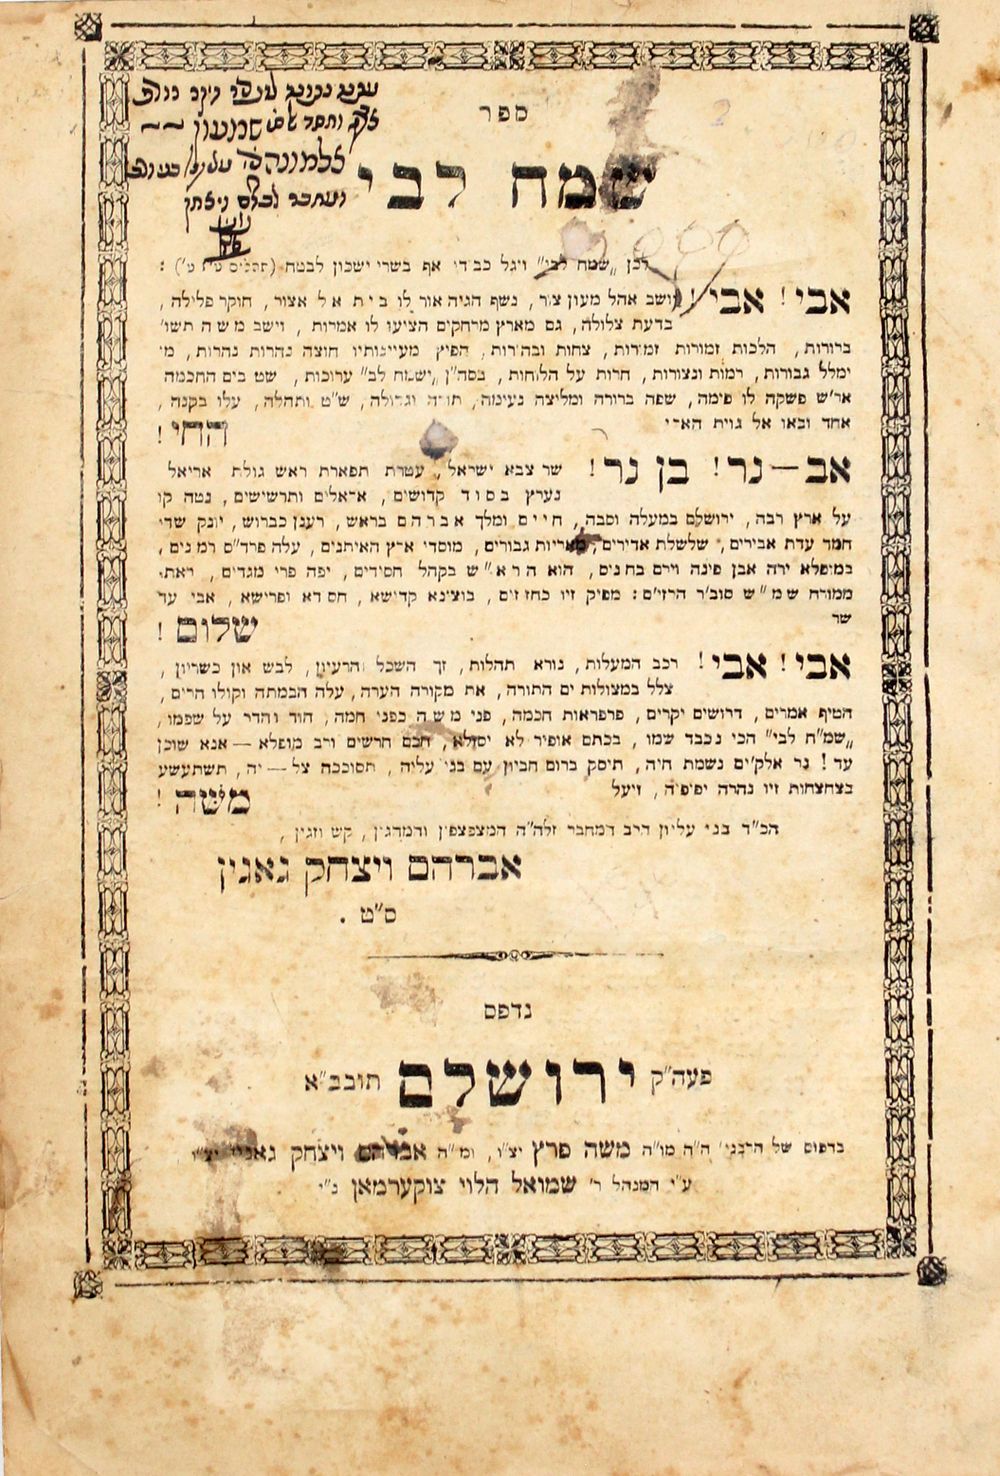 ספר
שמח לבי
לכן „שמח לבי״ ויגל כבודי אף בשרי ישכון לבטח
אבי! אבי! יושב אהל מעון צור, נשף הגיה אור לו בית אל אצור, חוקר פלילה,
בדעת צלולה, גם מארץ מרחקים הציעו לו אמרות, וישב משה תשו׳
ברורות, הלכות זמורות זמירות, צחות ובהירות, הפיץ מעיינותיו חוצה נהרות נהרות, מי
ימלל גבורות, רמות ונצורות, חרות על הלוחות, בסה״ן „ישמח לב״ ערוכות, שט בים החכמה
אר״ש פשקה לו פימה, שפה ברורה ומליצה נעימה, תורה וגדולה, ש״ט ותהלה, עלו בקנה,
אחד ובאו אל גוית הארי החי!
אב—נר! בן נר! שר צבא ישראל, עטרת תפארת ראש גולת אריאל
נערץ בסוד קדושים, אראלים ותרשישים, נטה קו
על ארץ רבה, ירושלם במעלה וסבה, חיים ומלך אברהם בראש, רענן כברוש, יונק שדי
חמד עדת אבירים, שלשלת אדירים, מאריות גבורים, מוסדי ארץ האיתנים, עלה פרד״ס רמונים,
במופלא ירה אבן פינה וירם בחנים, הוא הרא״ש בקהל חסידים, יפה פרי מגדים, ראתו
ממזרח שמ״ש סוב״ר הרזי״ם: מפיק זיו כחזיזים, בוצינא קדישא, חסדא ופרישא, אבי עד
שר שלום!
אבי! אבי! רכב המעלות, נורא תהלות, זך השכל והרעיון, לבש און כשריון,
צלל במצולות ים התורה, את מקורה הערה, עלה הבמתה וקולו הרים,
הטיף אמרים, דרושים יקרים, פרפראות חכמה, פני משה כפני חמה, הוד והדר על שפמו,
„שמ״ח לבי״ הכי נכבד שמו, בכתם אופיר לא יסולא, חכם חרשים ורב מופלא — אנא שוכן
עד! נר אלקים נשמת חיה, תיסק ברום חביון עם בני עליה, תסוככה צל—יה, תשתעשע
בצחצחות זיו נהרה יפיפיה, זיעל משה!
הכ״ד בני עליון הרב המחבר זלה״ה המצפצפין והמהגין, קש וזגין,
אברהם ויצחק גאגין
ס״ט.
נדפס
פעה״ק ירושלם תובב״א
בדפוס של הרבני׳ ה״ה מו״ה משה פרץ יצ״ו, ומ״ה אברהם ויצחק גאגין יצ״ו
ע״י המנהל ר׳ שמואל הלוי צוקערמאן נ״י